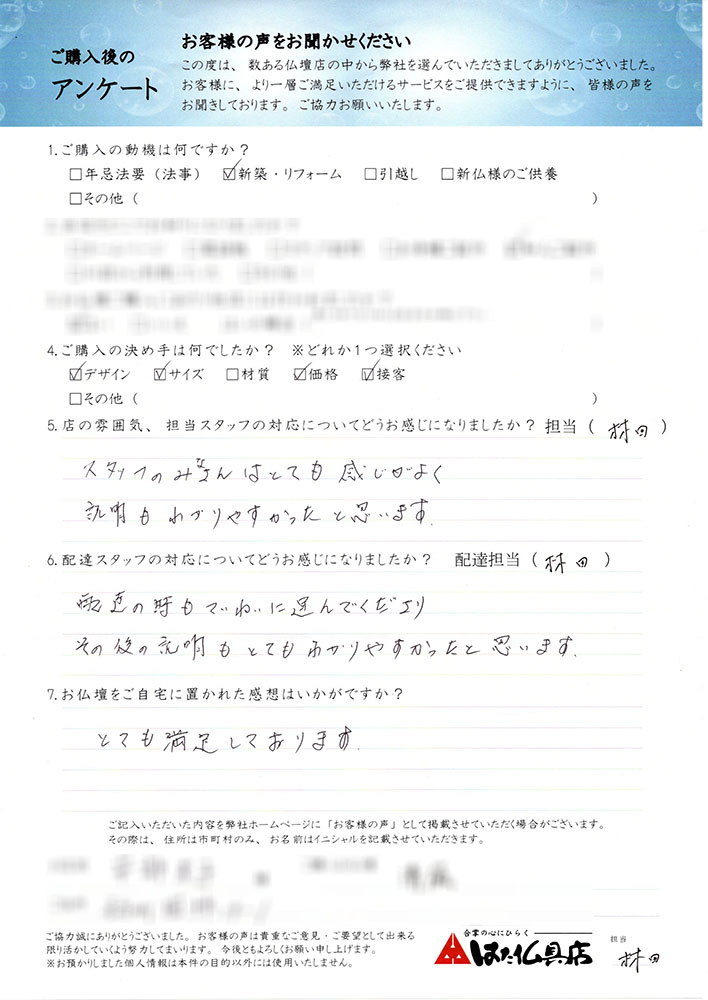 ご購入後の
アンケート
お客様の声をお聞かせください
この度は、数ある仏壇店の中から弊社を選んでいただきましてありがとうございました。
お客様に、より一層ご満足いただけるサービスをご提供できますように、皆様の声を
お聞きしております。ご協力お願いいたします。
1.ご購入の動機は何ですか？
□年忌法要（法事） ☑新築・リフォーム □引越し □新仏様のご供養
□その他（ ）
4.ご購入の決め手は何でしたか？ ※どれか1つ選択ください
☑デザイン ☑サイズ □材質 ☑価格 ☑接客
□その他（ ）
5.店の雰囲気、担当スタッフの対応についてどうお感じになりましたか？ 担当（ 林田 ）
スタッフのみなさんはとても感じがよく
説明もわかりやすかったと思います。
6.配達スタッフの対応についてどうお感じになりましたか？ 配達担当（ 林田 ）
配達の時もていねいに運んでくださり
その後の説明もとてもわかりやすかったと思います。
7.お仏壇をご自宅に置かれた感想はいかがですか？
とても満足しております。
ご記入いただいた内容を弊社ホームページに「お客様の声」として掲載させていただく場合がございます。
その際は、住所は市町村のみ、お名前はイニシャルを記載させていただきます。
ご協力誠にありがとうございました。お客様の声は貴重なご意見・ご要望として出来る
限り活かしていくよう努力してまいります。今後ともよろしくお願い申し上げます。
※お預かりしました個人情報は本件の目的以外には使用いたしません。
合掌の心にひらく
はた仏具店
担当
林田